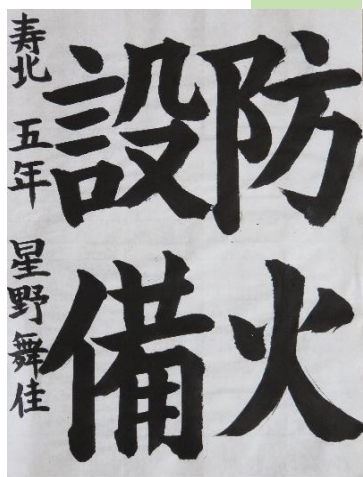 防火
設備
寿北 五年 星野舞佳